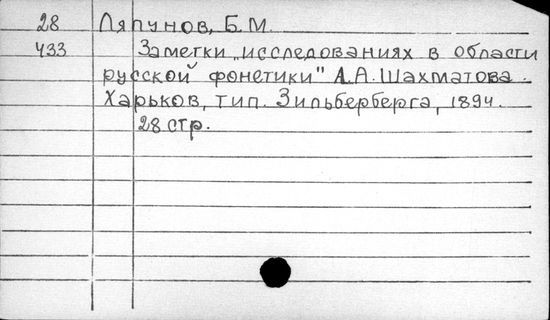 28 Ляпунов, Б.М.
433 Заметки „исследованиях в области
русской фонетики" А.А.Шахматова.
Харьков, тип. Зильберберга, 1894.
28 стр.